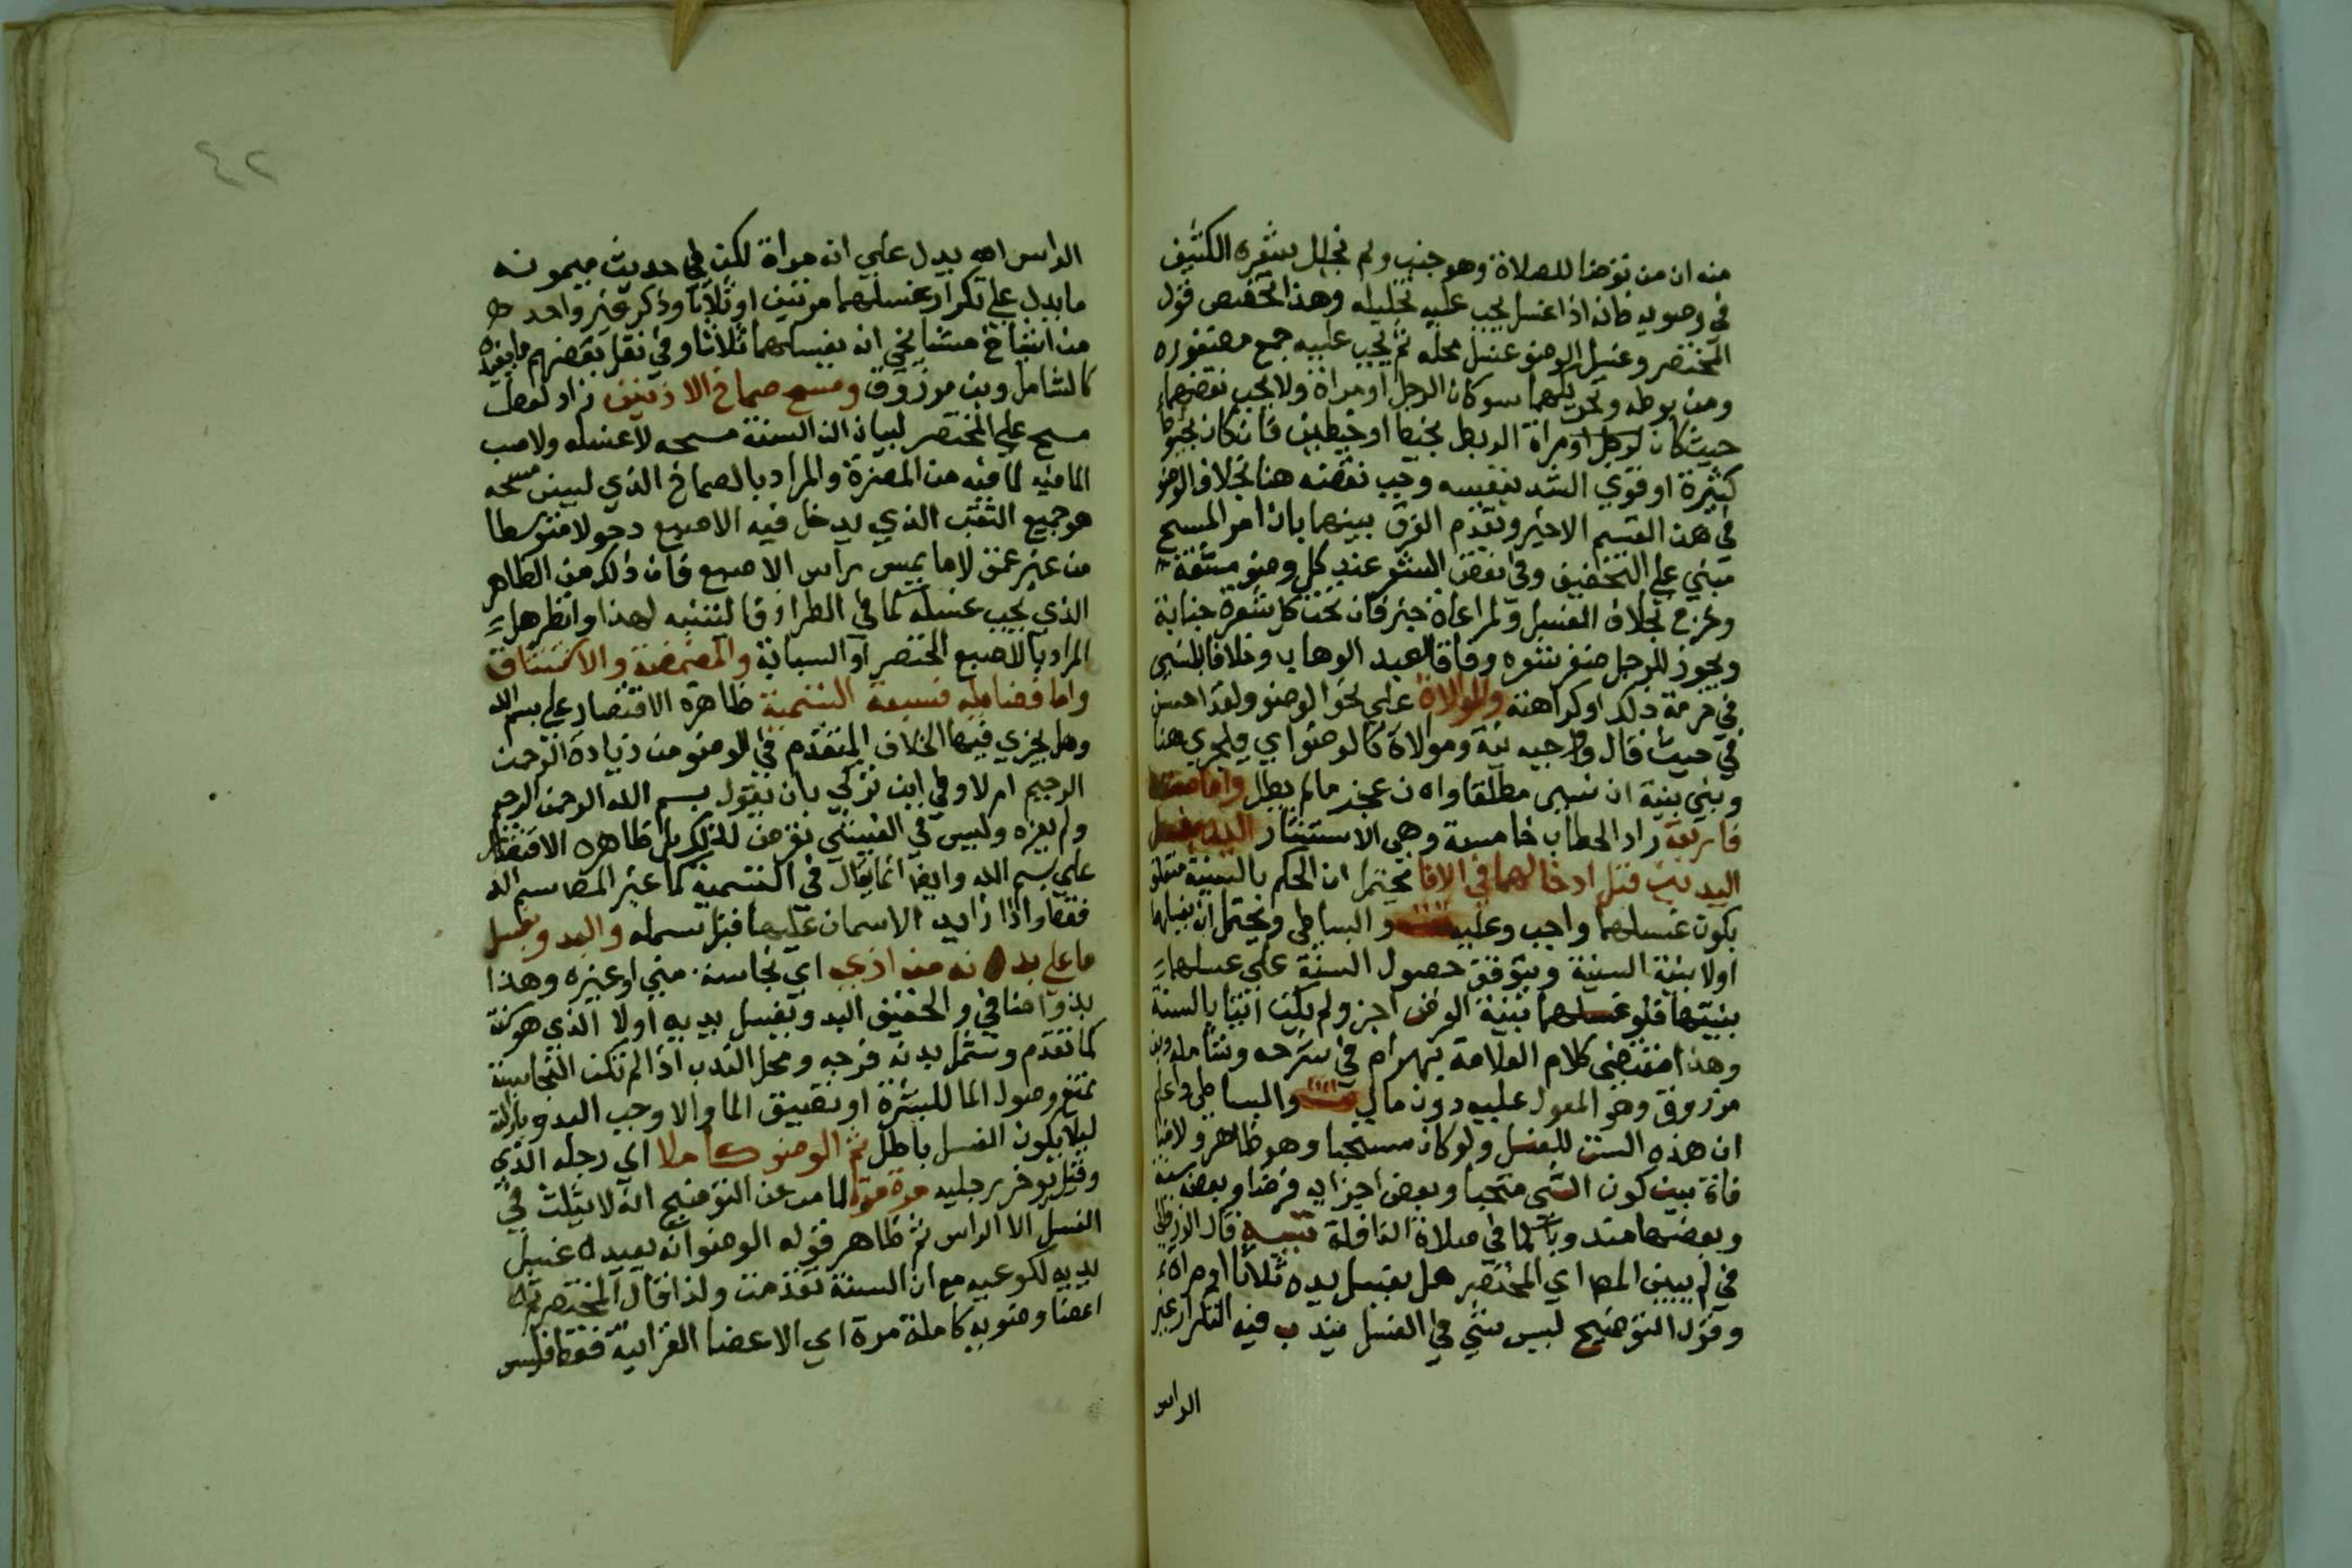 منه ان من توضا للصلاة وهو جنب ولم يخلل شعره الكثيف
في وضويه فانه اذا اغتسل يجب عليه تخليله وهذا تخصيص قول
المختصر وغسل الوضو عن غسل محله ثم يجب عليه جمع مضفوره
ومن بوطه وتحريكهما سوكان الرجل او مراة ولا يجب نقضهما
حيث كان لرجل او مراة الربط بخيط او خيطين فان كان بخيوط
كثيرة او قوي الشد بنفسه وجب نقضه هنا بخلاف الوضو
في هذا القسم الاخير وتقدم الفرق بينهما بان امر المسح
مبني على التخفيف وفي نقض الشعر عند كل وضو مشقة
وحرج بخلاف الغسل ولمراعاة خبر فان تحت كل شعرة جنابة
ويجوز للرجل ضفر شعره وفاقا لعبد الوهاب وخلافا للبلنسي
في حرمة ذلك او كراهته والموالاة على نحو الوضو ولقد احسن
في حيث قال واجبه نية وموالاة كالوضو اي فيجري هنا
وبني بنية ان نسي مطلقا وان عجز مالم يطل واما سننه
فاربعة زاد الحطاب خامسة وهي الاستنثار
اليدين قبل ادخالهما في الانا يحتمل ان الحكم بالسنية متعلق
بكون غسلهما واجب وعليه والبساطي ويحتمل ان يغسلهما
اولا بنية السنية ويتوقف حصول السنة على غسلهما
بنيتها فلو غسلهما بنية الفرض اجز ولم يكن اتيا بالسنة
وهذا مقتضى كلام العلامة بهرام في شرحه وشامله وبن
مرزوق وهو المعول عليه دون مال والبساطي واعلم
ان هذه السنن للغسل ولو كان مستحبا وهو ظاهر ولا منا
فاة بين كون الشي مستحبا وبعض اجزايه فرضا وبعضه سنة
وبعضها مندوبا كما في صلاة النافلة تنبيه قال الزرقاني
في لم يبين المص اي المختصر هل يغسل يده ثلاثا او مراة
وقول التوضيح ليس شي في الغسل يندب فيه التكرار غير
الراس
٤٢
الراس اهـ يدل على انه مراة لكن في حديث ميمونه
ما يدل على تكرار غسلهما مرتين او ثلاثا وذكر غير واحد
من اشياخ مشايخي انه يغسلهما ثلاثا وفي نقل بعضهم ما يفيده
كالشامل وبن مرزوق ومسح صماخ الاذنين زاد لفظ
مسح على المختصر لبيان ان السنة مسحه لا غسله ولا صب
الما فيه لما فيه من المضرة والمراد بالصماخ الذي ليس مسحه
هو جميع الثقب الذي يدخل فيه الاصبع دخولا متوسطا
من غير عمق لا ما يمس براس الاصبع فان ذلك من الظاهر
الذي يجب غسله كما في الطراز فالتنبه لهذا وانظر هل
المراد بالاصبع الخنصر او السبابة والمضمضة والاستنشاق
واما فضايله فسبعة التسمية ظاهره الاقتصار على بسم الله
وهل يجزي فيها الخلاف المتقدم في الوضو من زيادة الرحمن
الرحيم ام لا وفي ابن تركي بان يقول بسم الله الرحمن الرحيم
ولم يعزه وليس في الفيشي تعرض لذلك بل ظاهره الاقتصار
على بسم الله وايضا انما يقال في التسمية كما عبر المص بسم الله
فقط واذا زايد الاسمان عليها قيل بسمله والبدو بغسل
ما على بدنه من اذي اي نجاسة مني او غيره وهذا
بدو اضافي والحقيقي البدو بغسل يديه اولا الذي هو سنة
كما تقدم وشمل بدنه فرجه ومحل الندب اذا لم تكن النجاسة
تمنع وصول الما للبشرة او تضيق الما والا وجب البدو بازالته
ليلا يكون الغسل باطل ثم الوضو كاملا اي رجله الذي
وقيل يوخر رجليه مرة مرة لما مر عن التوضيح انه لا يثلث في
الغسل الا الراس ثم ظاهر قوله الوضو انه يعيد غسل
يديه لكوعيه مع ان السنة تقدمت ولذا قال المختصر ثم
اعضا وضويه كاملة مرة اي الاعضا القرانية فقط فليس